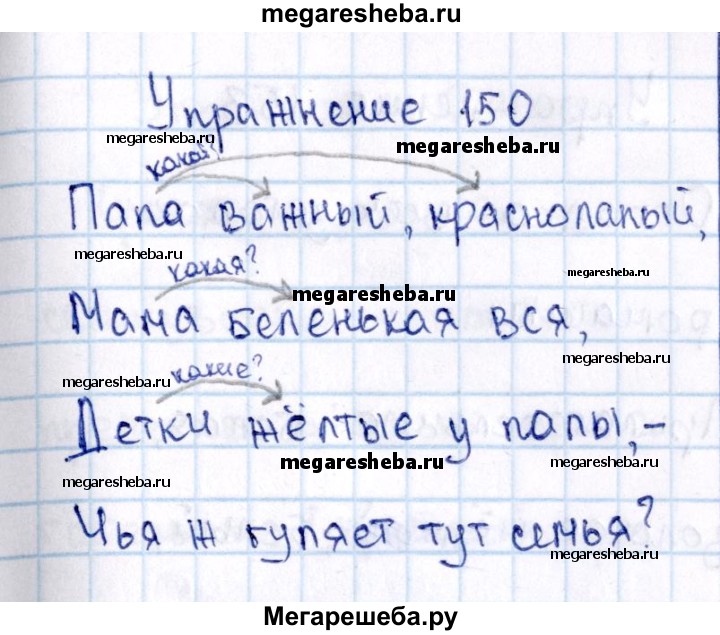 megaresheba.ru
Упражнение 150
megaresheba.ru
megaresheba.ru
какой?
Папа важный, краснолапый,
megaresheba.ru
какая?
megaresheba.ru
megaresheba.ru
Мама беленькая вся,
megaresheba.ru
megaresheba.ru
какие?
Детки жёлтые у папы,–
megaresheba.ru
megaresheba.ru
megaresheba.ru
Чья ж гуляет тут семья?
megaresheba.ru
Мегарешеба.ру